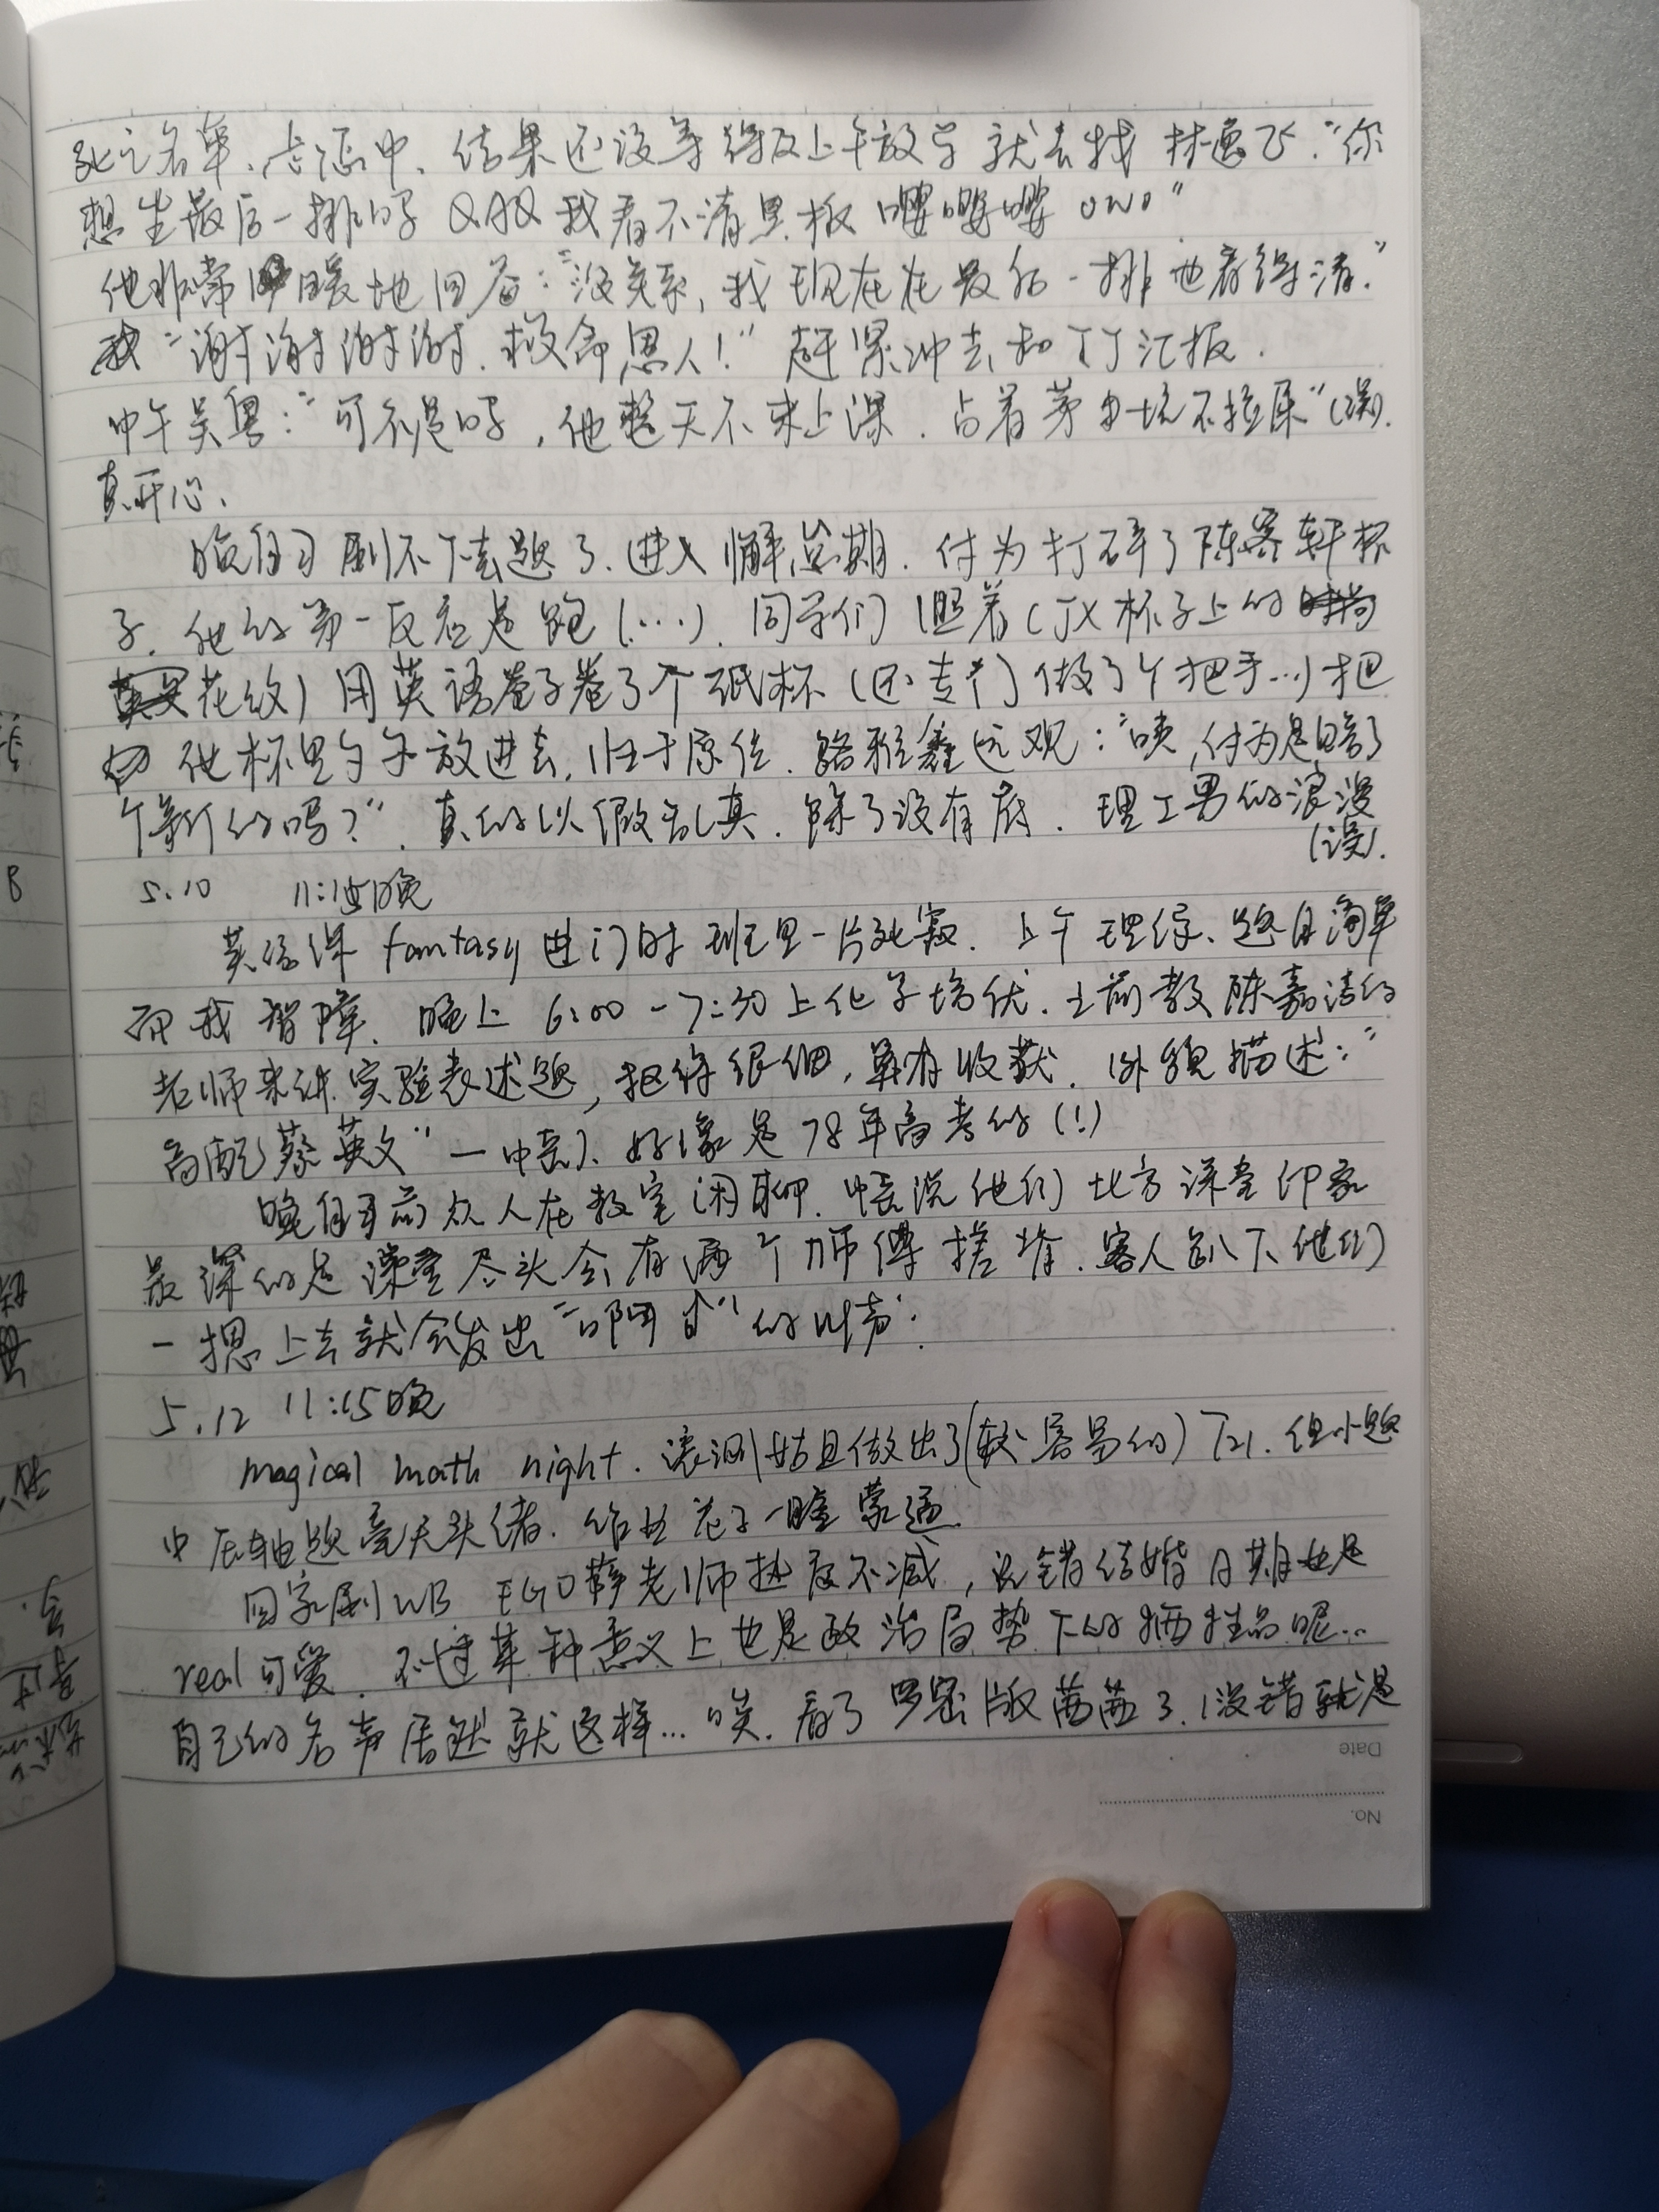 死亡名单、忐忑中、结果还没等得及上午放学就去找林逸飞."你
想坐最后一排吗 QAQ 我看不清黑板 嘤嘤嘤 OWO"
他非常暖地回答:"没关系,我现在在最后一排也看得清."
"谢谢谢谢.救命恩人!"赶紧冲去和 TJ 汇报.
中午吴粤:"可不是吗,他整天不来上课.占着茅坑不拉屎"(误).
真开心、
晚自习刷不下去题了.进入懈怠期.付为打碎了陈客轩杯
子.他的第一反应是跑(...).同学们(照着CJX杯子上的
花纹)用英语卷子卷了个纸杯(还专门做了个把手...)把
他杯里勺子放进去,归于原位.骆雅鑫远观:"咦,付为是赔了
个新的吗?".真的以假乱真.除了没有底.理工男的浪漫
(误).
5.10 11:15晚
英语课 fantasy 进门时班里一片死寂.上午理综、题目简单
而我智障.晚上 6:00-7:30上化学培优.之前教陈嘉洁的
老师来讲实验表述题,抠得很细,算有收获.(外貌描述:"
高配蔡英文"一中袁)、好像是78年高考的(!)
晚自习前众人在教室闲聊.说他们北方澡堂印象
最深的是澡堂尽头会有两个师傅搓背.客人趴下他们
一摁上去就会发出"的叫声.
5.12 11:15晚
magical math night.滚测姑且做出了(较容易的)T21.但小题
中压轴题毫无头绪.给出花子一瞳蒙逼.
回家刷WB EGO薛老师热度不减,说错结婚日期也是
real可爱.不过某种意义上也是政治局势下的牺牲品呢...
自己的名声居然就这样...唉.看了罗密版茜茜了.(没错就是
Date
No.